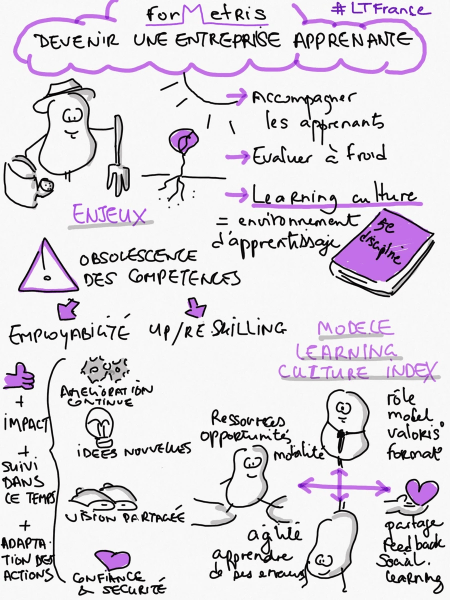 forMetris
#LTFrance
DEVENIR UNE ENTREPRISE APPRENANTE
→ Accompagner
les apprenants
→ Evaluer à froid
→ Learning culture
= environnement
d'apprentissage
5e
discipline
ENJEUX
OBSOLESCENCE
DES COMPETENCES
EMPLOYABILITÉ
UP/RE SKILLING
+
IMPACT
+
SUIVI
DANS
CE TEMPS
+
ADAPTA-
TION DES
ACTIONS
AMELIORATION
CONTINUE
IDEES NOUVELLES
VISION PARTAGÉE
CONFIANCE
& SECURITÉ
MODELE
LEARNING
CULTURE INDEX
Ressources
opportunités
mobilité
rôle
model
valoris°
format°
agilité
apprendre
de ses erreurs
partage
feedback
social
learning